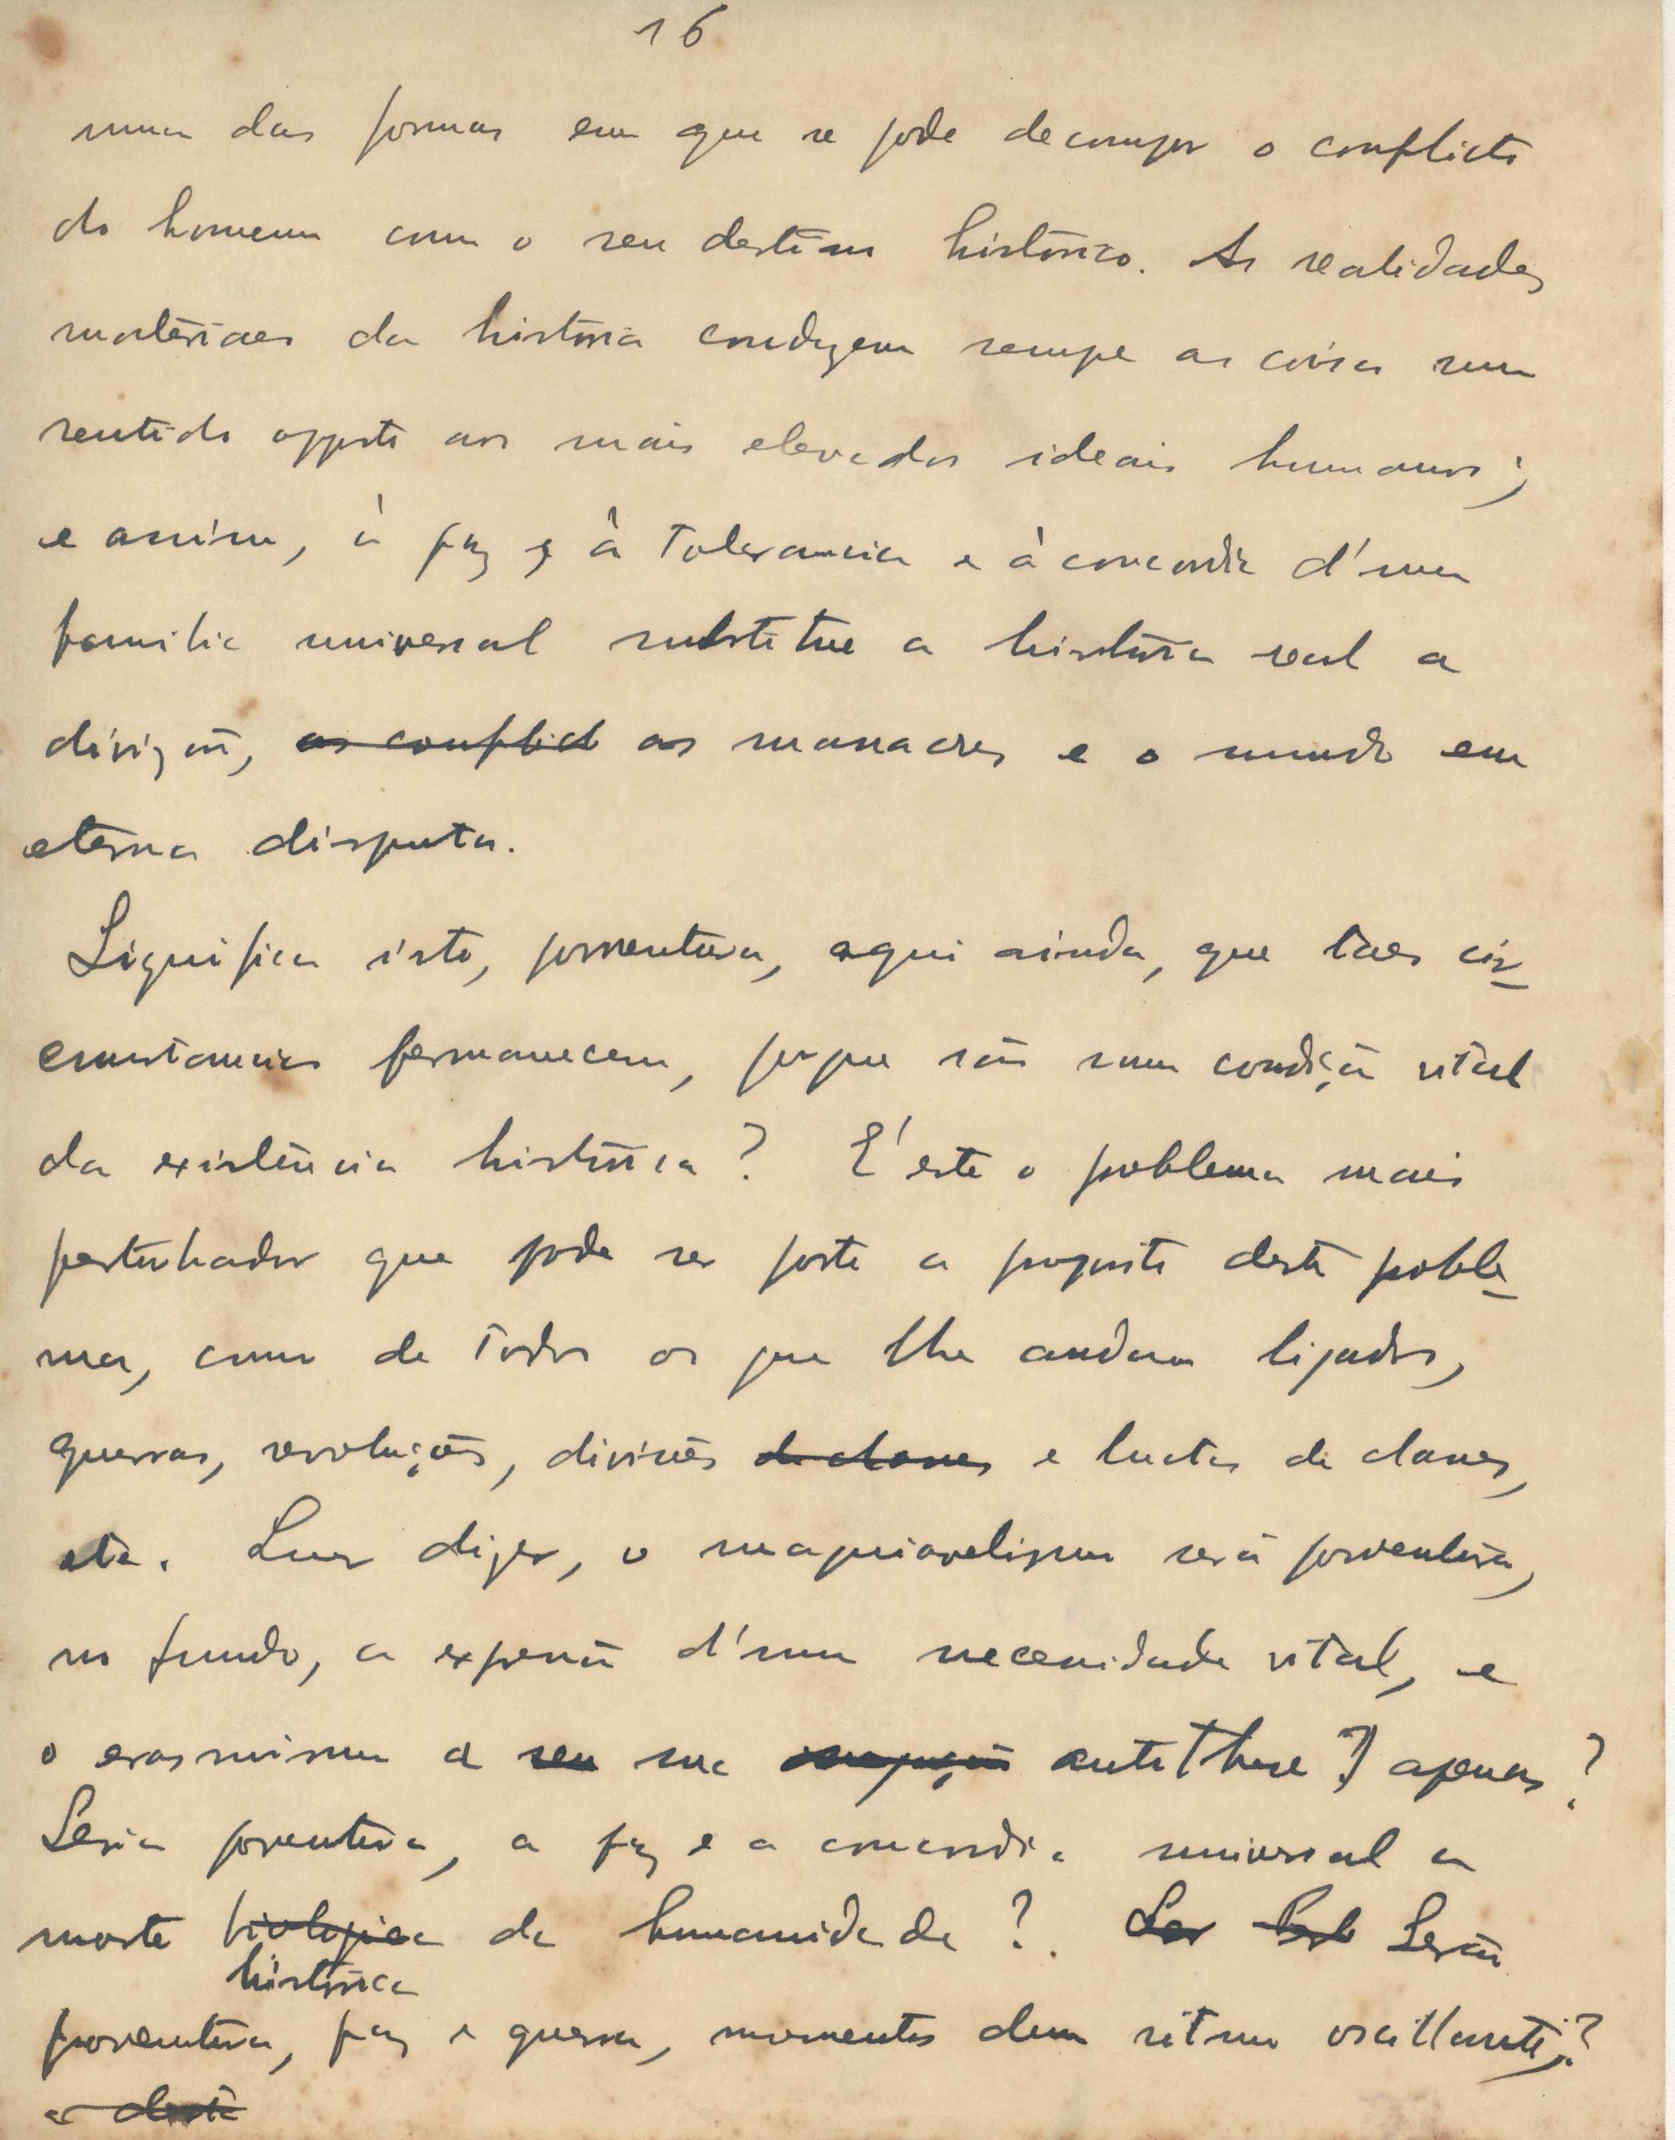 16
numa das formas em que se pode decompor o conflicto
do homem com o seu destino histórico. As realidades
materiaes da história conduzem sempre as coisas num
sentido opposto aos mais elevados ideais humanos;
e assim, à paz e à tolerancia e à concordia d'uma
familia universal substitue a história real a
divizão, as conflict os massacres e o mundo em
eterna disputa.
Significa isto, porventura, aqui ainda, que taes cir-
cunstancias permanecem, porque são uma condição vital
da existência histórica? É este o problema mais
perturbador que pode ser posto a proposito deste proble-
ma, como de todos os que lhe andam ligados,
guerras, revoluções, divisões de classes e luctas de classes,
etc. Quer dizer, o maquiavelismo será porventura,
no fundo, a expressão d'uma necessidade vital, e
o erasmismo a seu sua antithese? apenas?
Seria porventura, a paz e a concordia universal a
morte biologica da humanidade? Ser Serão
histórica
porventura, paz e guerra, momentos dum ritmo oscillante?
e deste